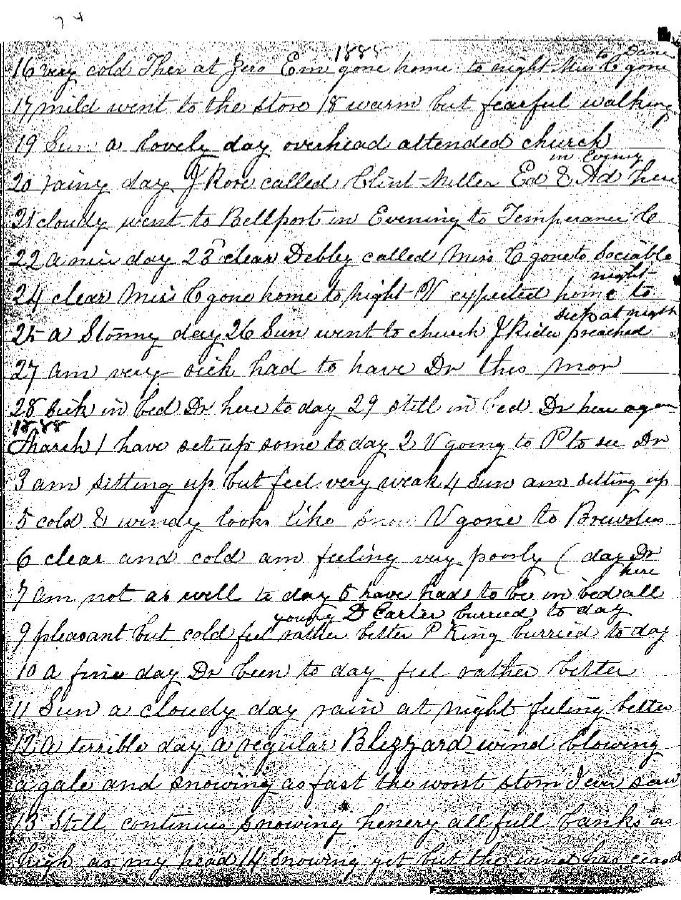 74
1888
16 very cold Ther at Zero Em gone home to night Miss C gone to Dane
17 mild went to the store 18 warm but fearful walking
19 Sun a lovely day overhead attended church
20 rainy day J Rose called Clint Miller Ed & Ad here in Evening
21 cloudy went to Bellport in Evening to Temperance C
22 a nice day 23 clear Debby called Miss C gone to Sociable
24 clear Miss C gone home to night V expected home to night
25 a Stormy day 26 Sun went to church J Rider preached sick at night
27 am very sick had to have Dr this mor
28 sick in bed Dr here to day 29 still in bed Dr here again
1888
March 1 have set up some to day 2 V going to P to see Dr
3 am sitting up but feel very weak 4 Sun am sitting up
5 cold & windy looks like snow V gone to
6 clear and cold am feeling very poorly
7 am not as well to day 8 have had to be in bed all (day Dr here
young D Carter burried to day
9 pleasant but cold feel rather better P King burried to day
10 a fine day Dr been to day feel rather better
11 Sun a cloudy day rain at night feeling better
12 A terrible day a regular Blezzard wind blowing
a gale and snowing as fast the worst storm I ever saw
13 Still continues snowing all full banks as
high as my head 14 snowing yet but the wind has ceased